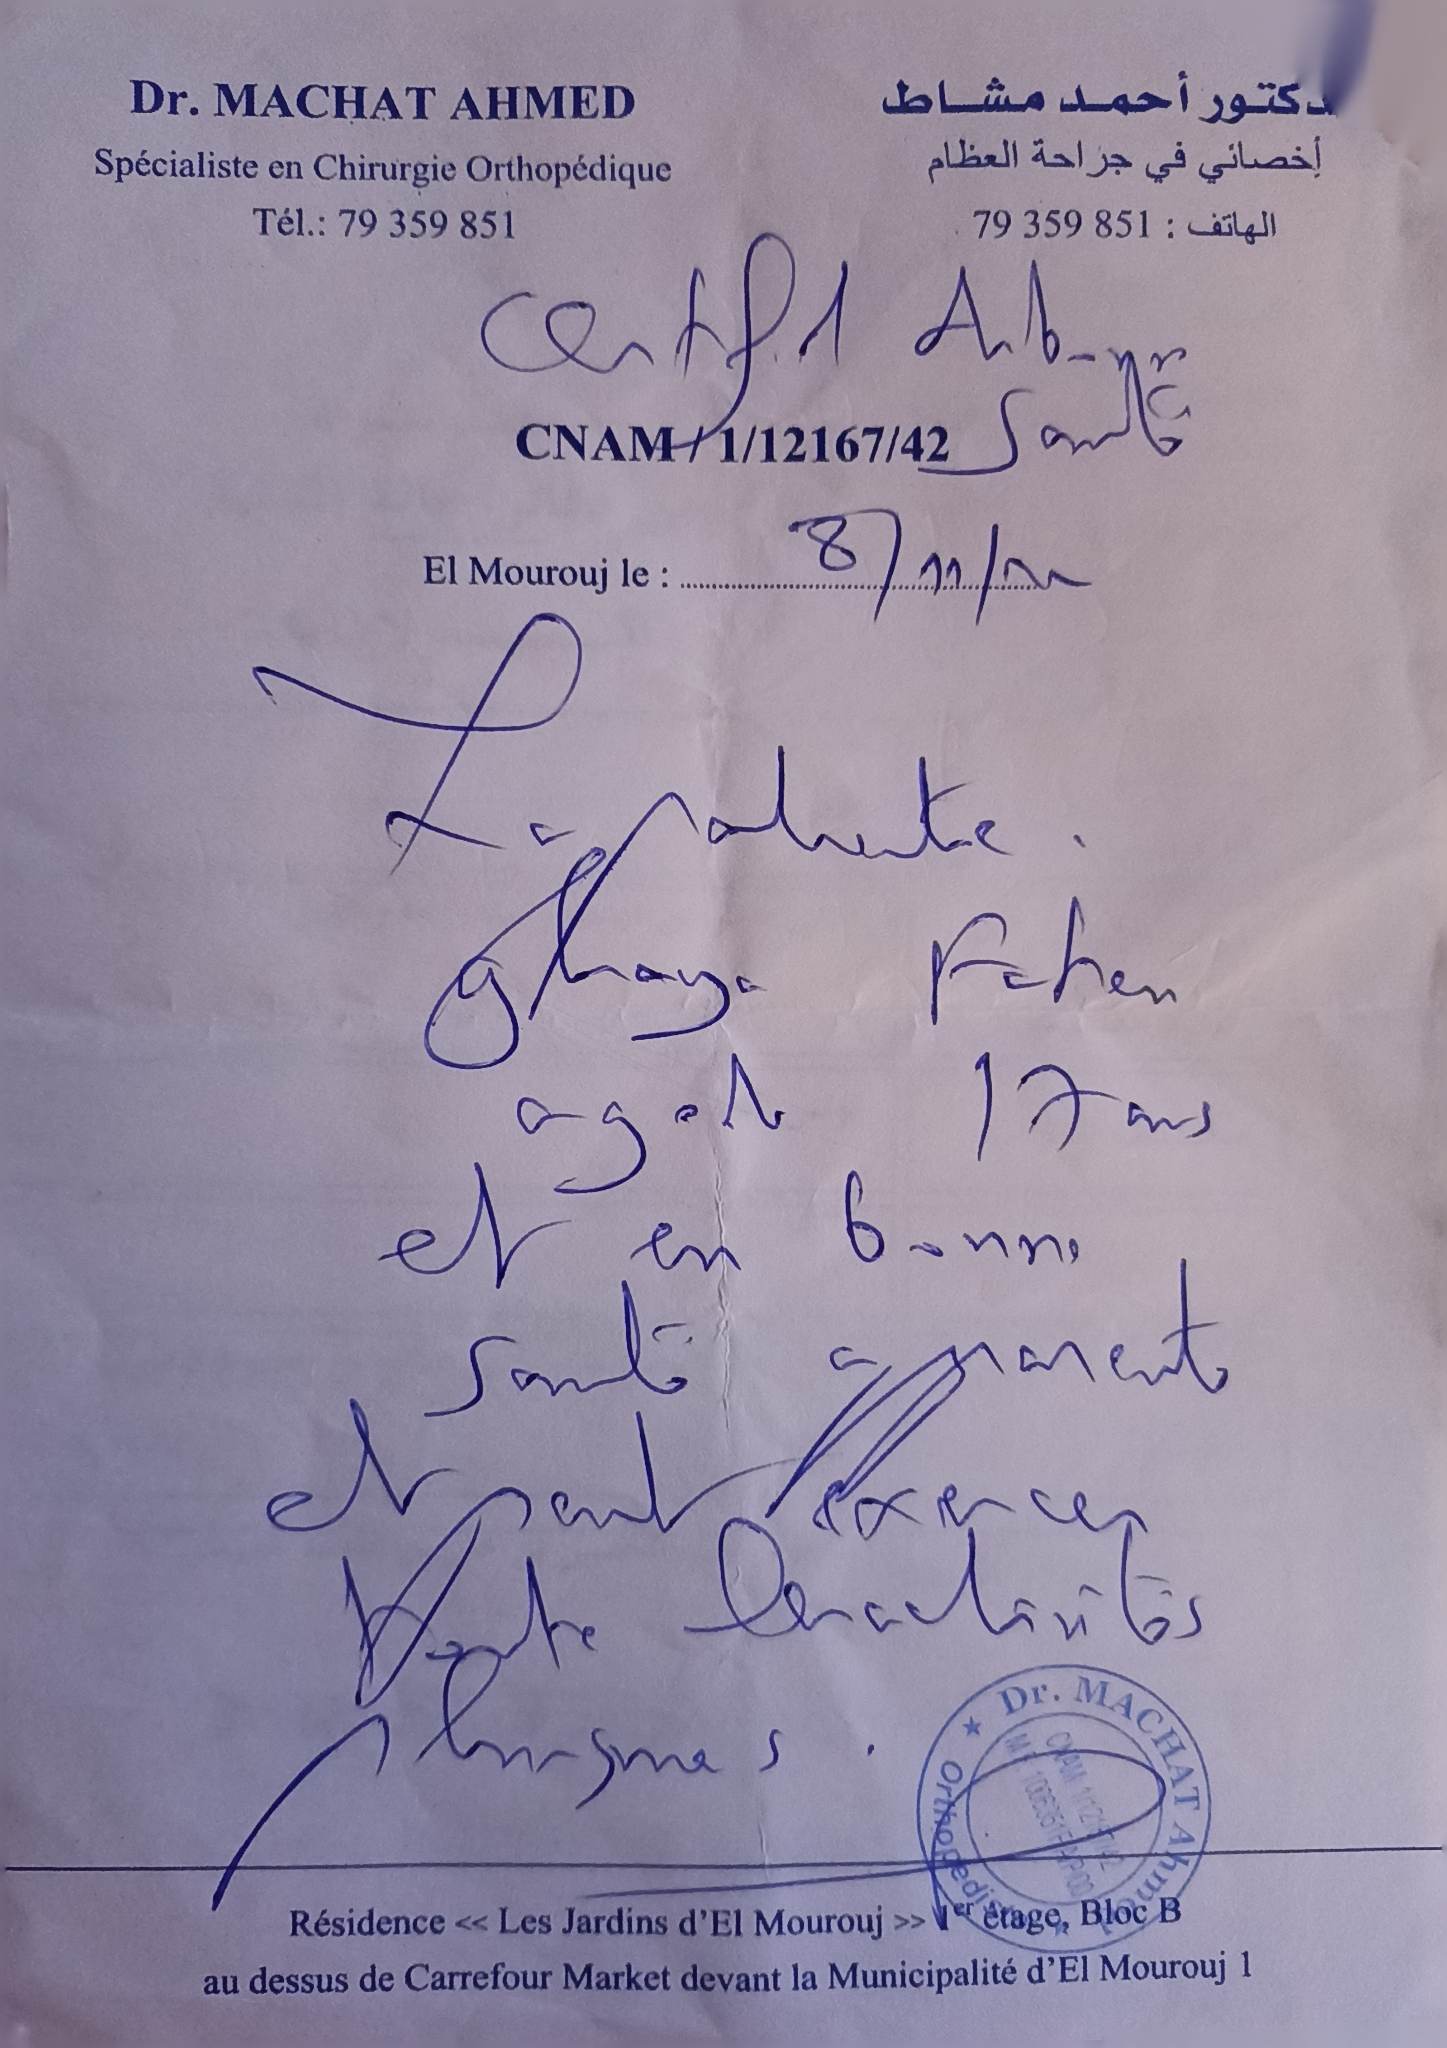 Dr. MACHAT AHMED
Spécialiste en Chirurgie Orthopédique
Tél.: 79 359 851
دكتور أحمد مشاط
أخصائي في جراحة العظام
الهاتف : 79 359 851
Certif.
Santé
CNAM / 1/12167/42
El Mourouj le : 8/11/
La patiente.
Ghaya Faten
17 ans
et en bonne
santé apparente
et peut exercer
toute les activités
physiques.
Dr. MACHAT Ahmed
Orthopédiste
Résidence << Les Jardins d'El Mourouj >> 1er étage, Bloc B
au dessus de Carrefour Market devant la Municipalité d'El Mourouj 1